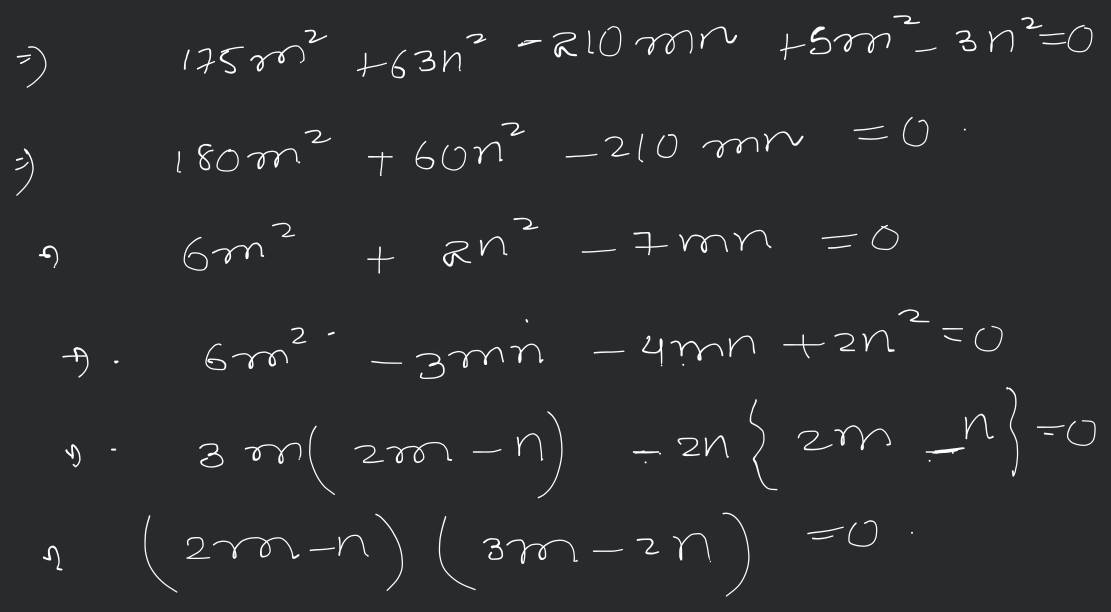 ⇒) 175m² + 63n² - 210mn + 5m² - 3n² = 0
⇒) 180m² + 60n² - 210mn = 0.
⇒ 6m² + 2n² - 7mn = 0
⇒. 6m² - 3mn - 4mn + 2n² = 0
⇒. 3m(2m - n) - 2n{2m - n} = 0
⇒ (2m - n)(3m - 2n) = 0.